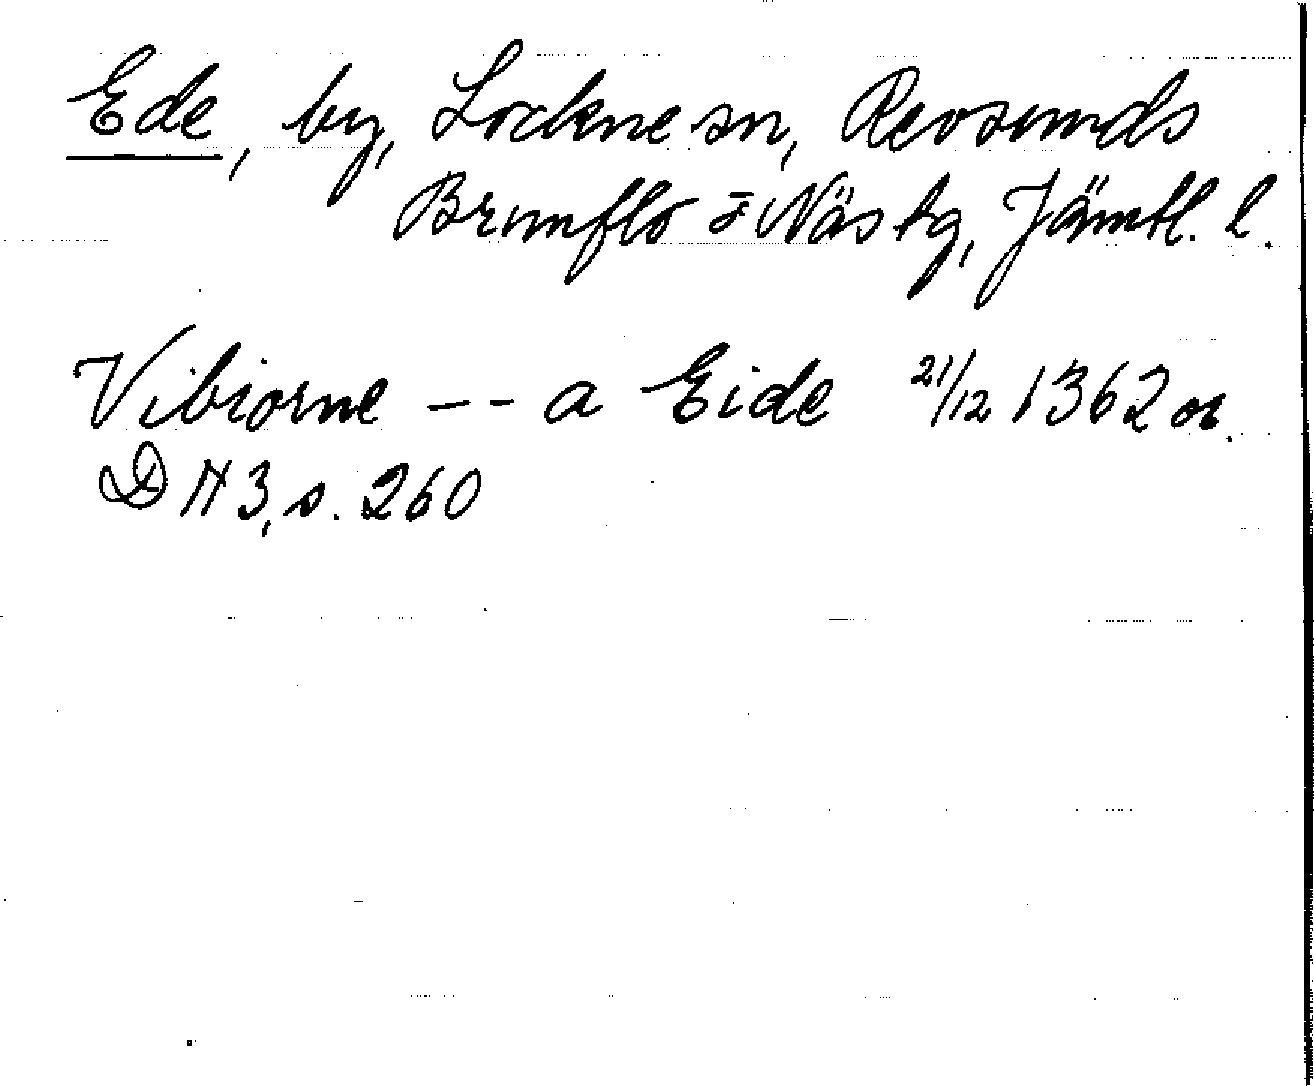 Ede, by, Lockne sn, Revsunds
Brunflo o Näs tg, Jämtl. l.
Vibiorne -- a Eide 21/12 1362 or.
DN 3, s. 260